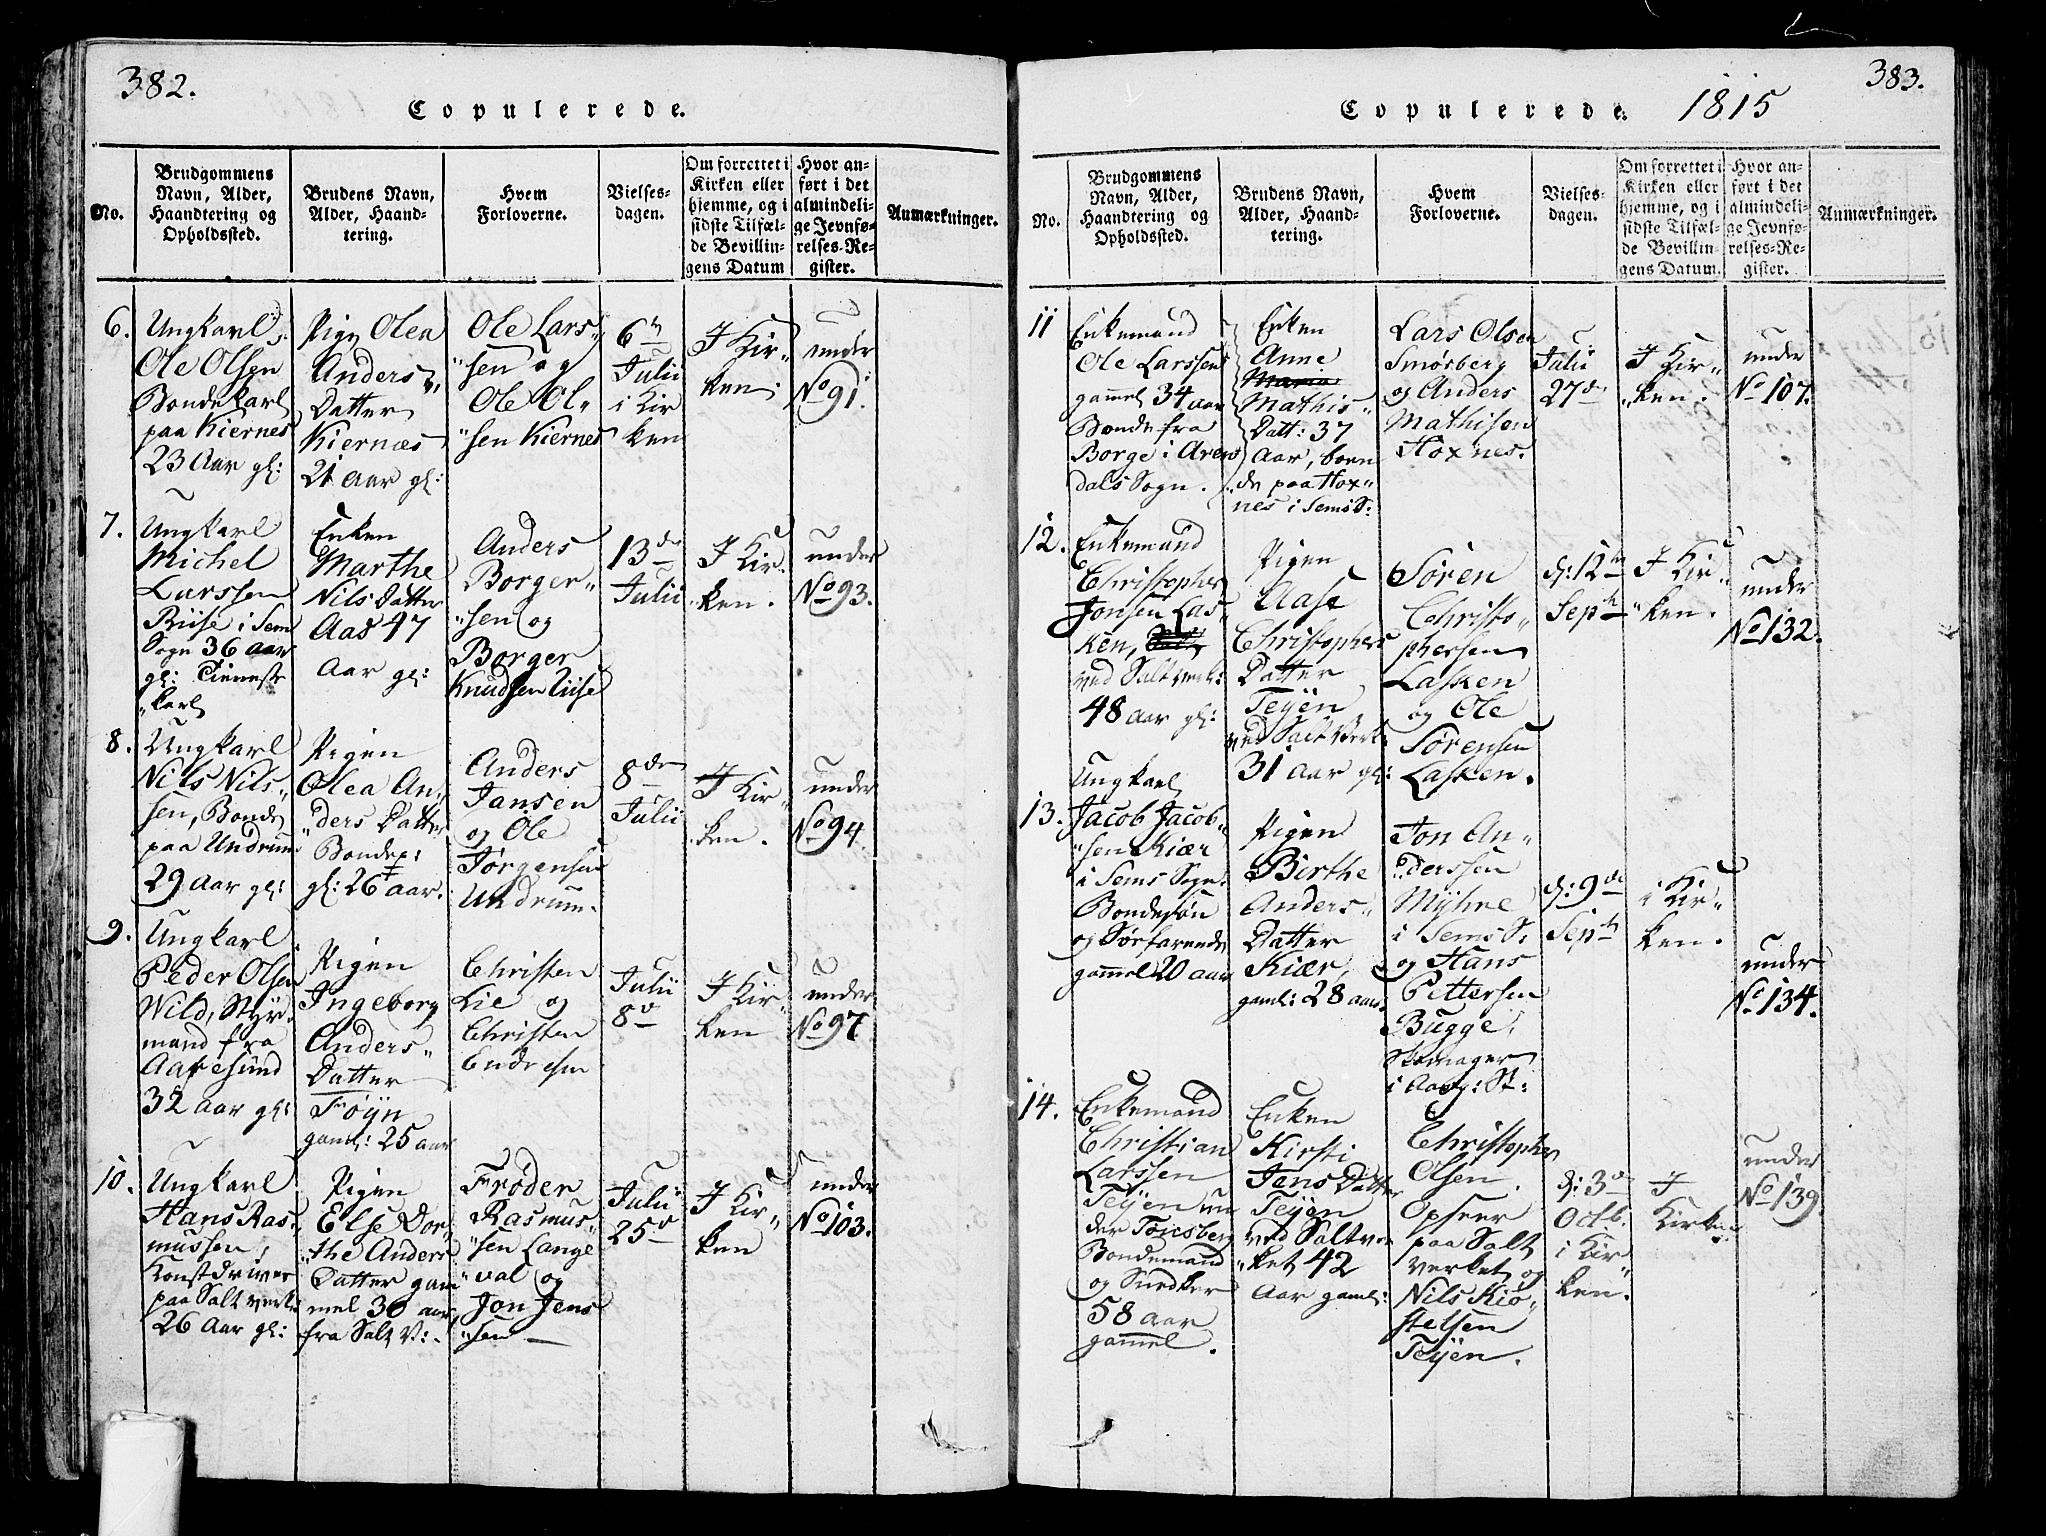 382.
Copulerede.
No.
Brudgommens
Navn, Alder,
Haandtering og
Opholdssted.
Brudens Navn,
Alder, Haand-
tering.
Hvem
Forloverne.
Vielses-
dagen.
Om forrettet i
Kirken eller
hjemme, og i
sidste Tilfæl-
de Bevillin-
gens Datum
Hvor an-
ført i det
almindeli-
ge Jevnfø-
relses-Re-
gister.
Anmærkninger.
6.
Ungkarl
Ole Olsen
Bondekarl
paa Kiernes
23 Aar gl:
Pig Olea
Anders
Datter
Kiernæs
21 Aar gl:
Ole Lars
"sen og
Ole Ol"
"sen Kiernes
6
Julii
i Kir
ken
I Kir"
ken
under
No 91.
7.
Ungkarl
Michel
Larssen
Riise i Sem
Sogn 36 aar
gl: Tieneste
"karl
Enken
Marthe
Nils Datter
Aas 47
Aar gl:
Anders
Borger"
"sen og
Borger
Knudsen Riise
13de
Julii
I Kir"
"ken.
under
No 93.
8.
Ungkarl
Nils Nils"
sen, Bonde
paa Undrum
29 Aar gl:
Pigen
Olea An"
"ders Datter
Bondep:
gl: 26 aar.
Anders
Jansen
og Ole
Jørgensen
Undrum.
8de
Julii
I Kir"
ken.
under
No 94
9.
Ungkarl
Peder Olsen
Wild, Styr"
mand fra
Aarøsund
32 Aar gl:
Pigen
Ingeborg
Anders"
Datter
Føyn
gaml: 25 aar
Christen
Lie og
Christen
Endresen
Julii
8de
I Kir"
ken
under
No 97.
10.
Ungkarl
Hans Ras"
mussen,
Konstdriver
paa Saltverk:
26 Aar gl:
Pigen
Else Dor"
"the Anders
Datter gam
mel 36 aar
fra Salt V:
Frøder
Rasmus"
"sen Lange
"val og
Jon Jens
"sen
Julii
25de
I Kir"
ken
under
No 103.
383.
Copulerede. 1815
No.
Brudgommens
Navn, Alder,
Haandtering og
Opholdssted.
Brudens Navn,
Alder, Haand-
tering.
Hvem
Forloverne.
Vielses-
dagen.
Om forrettet i
Kirken eller
hjemme, og i
sidste Tilfæl-
de Bevillin-
gens Datum.
Hvor an-
ført i det
almindeli-
ge Jevnfø-
relses-Re-
gister.
Anmærkninger.
11
Enkemand
Ole Larssen
gammel 34 aar
Bonde fra
Borge i Aren
dals Sogn.
Enken
Anne
Maria
Mathis"
Datt: 37
Aar, boen
de paa Hox"
nes i Sems S:
Lars Olsen
Smørberg
og Anders
Mathisen
Hoxnes.
Julii
27de
I Kir"
"ken.
under
No 107.
12.
Enkemand
Christopher
Jonsen Las"
ken,
ved Saltverk:
48 aar gl:
Pigen
Aase
Christophers
Datter
Teÿen
ved SaltVerk
31 aar gl:
Søren
Christo"
phersen
Lasken
og Ole
Sørensen
Lasken.
d: 12te
Sept
I Kir"
"ken.
under
No 132.
13.
Ungkarl
Jacob Jacob"
"sen Kiær
i Sems Sogn.
Bondesøn
og Sørfarende
gammel 20 aar
Pigen
Birthe
Anders"
Datter
Kiær,
gaml: 28 aar.
Jon An"
"derssen
Mÿhre
i Sems S:
og Hans
Pettersen
Bugge,
Skomager
i Aasg: St:
d: 9de
Sept
i Kir"
ken.
under
No 134.
14.
Enkemand
Christian
Larssen
Teÿen un
der
Bondemand
og Snedker
58 aar
gammel.
Enken
Kirsti
Jens Datter
Teÿen
ved Saltver
"ket 42
Aar gaml:
Christopher
Olsen
Opseer
paa Salt
verket og
Nils Kiø"
stelsen
Teÿen.
d: 3de
Octb.
i Kir"
ken.
I
Kirken
under
No 139.